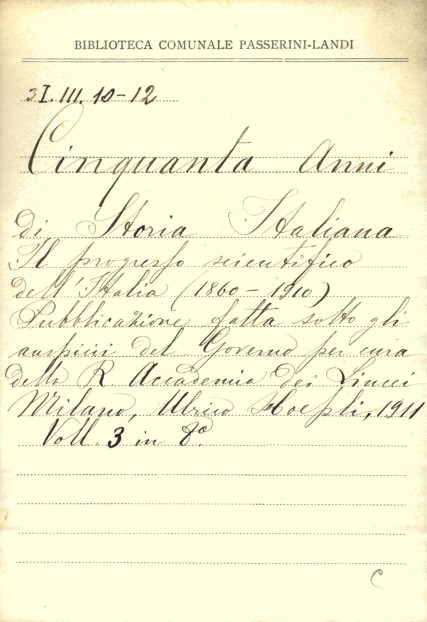 BIBLIOTECA COMUNALE PASSERINI-LANDI
3I.III.10-12
Cinquanta Anni
Di Storia Italiana
Il progresso scientifico
dell'Italia (1860-1910)
Pubblicazione fatta sotto gli
auspicii del Governo per cura
della R Accademia dei Lincei
Milano, Ulrico Hoepli, 1911
Voll. 3 in 8º.
C